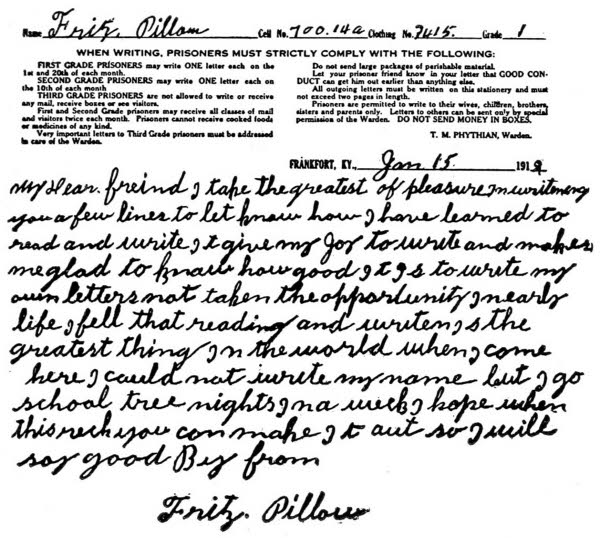 Name Fritz. Pillow Cell No. 700.14a Clothing No. 7415. Grade 1
WHEN WRITING, PRISONERS MUST STRICTLY COMPLY WITH THE FOLLOWING:
FIRST GRADE PRISONERS may write ONE letter each on the
1st and 20th of each month.
SECOND GRADE PRISONERS may write ONE letter each on
the 10th of each month
THIRD GRADE PRISONERS are not allowed to write or receive
any mail, receive boxes or see visitors.
First and Second Grade prisoners may receive all classes of mail
and visitors twice each month. Prisoners cannot receive cooked foods
or medicines of any kind.
Very important letters to Third Grade prisoners must be addressed
in care of the Warden.
Do not send large packages of perishable material.
Let your prisoner friend know in your letter that GOOD CON-
DUCT can get him out earlier than anything else.
All outgoing letters must be written on this stationery and must
not exceed two pages in length.
Prisoners are permitted to write to their wives, children, brothers,
sisters and parents only. Letters to others can be sent only by special
permission of the Warden. DO NOT SEND MONEY IN BOXES.
T. M. PHYTHIAN, Warden.
FRANKFORT, KY., Jan 15 1919
My Dear. freind I take the greatest of pleasure In writeneng
you a few lines to let know how I have learned to
read and write It give my Joy to write and makes
me glad to know how good It Is to write my
own letters not taken the opportunity In early
life I fell that reading and writen Is the
greatest thing In the world when I come
here I could not write my name but I go
school tree nights In a week I hope when
this rech you con make It out so I will
say good By from
Fritz. Pillow